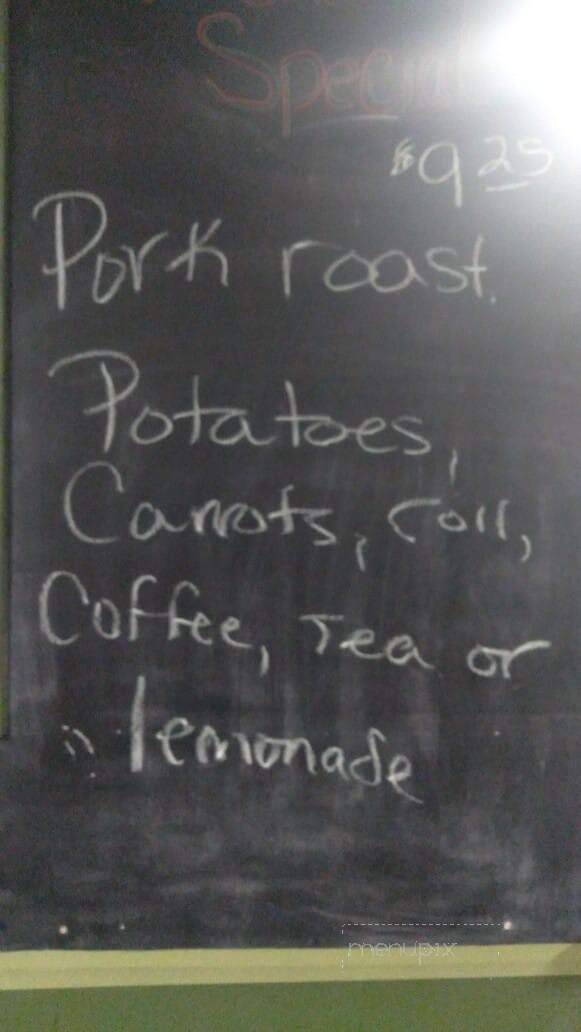 Special
$9 25
Pork roast.
Potatoes,
Carrots, roll,
Coffee, Tea or
lemonade
menupix